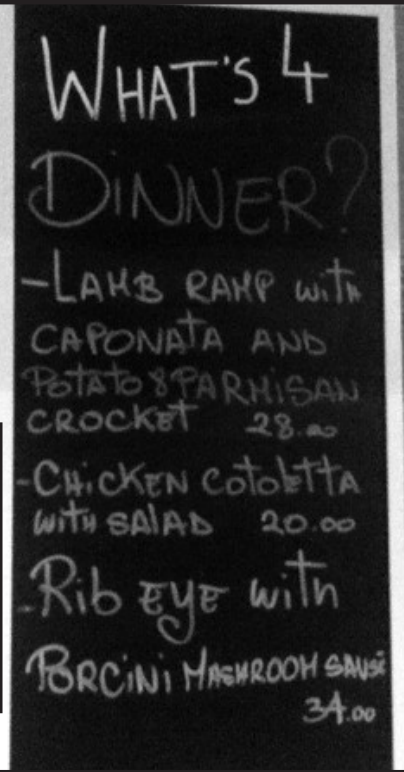 WHAT'S 4
DINNER?
-LAMB RAMP with
CAPONATA AND
POTATO & PARMISAN
CROCKET 28.00
-CHICKEN COTOLETTA
WITH SALAD 20.00
-Rib EYE with
PORCINI MASHROOM SAUSE
34.00